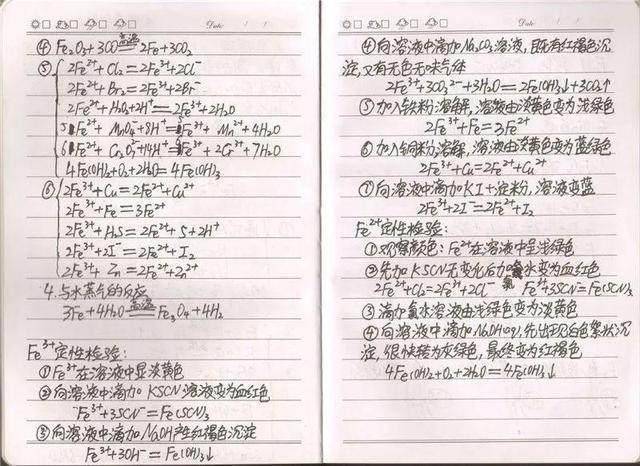 Date
④ Fe₂O₃+3CO =高温= 2Fe+3CO₂
⑤ 2Fe²⁺+Cl₂=2Fe³⁺+2Cl⁻
2Fe²⁺+Br₂=2Fe³⁺+2Br⁻
2Fe²⁺+H₂O₂+2H⁺=2Fe³⁺+2H₂O
5Fe²⁺+MnO₄⁻+8H⁺=5Fe³⁺+Mn²⁺+4H₂O
6Fe²⁺+Cr₂O₇²⁻+14H⁺=6Fe³⁺+2Cr³⁺+7H₂O
4Fe(OH)₂+O₂+2H₂O=4Fe(OH)₃
⑥ 2Fe³⁺+Cu=2Fe²⁺+Cu²⁺
2Fe³⁺+Fe=3Fe²⁺
2Fe³⁺+H₂S=2Fe²⁺+S+2H⁺
2Fe³⁺+2I⁻=2Fe²⁺+I₂
2Fe³⁺+Zn=2Fe²⁺+Zn²⁺
4.与水蒸气的反应
3Fe+4H₂O =高温= Fe₃O₄+4H₂
Fe³⁺定性检验:
①Fe³⁺在溶液中显淡黄色
②向溶液中滴加KSCN溶液变为血红色
Fe³⁺+3SCN⁻=Fe(SCN)₃
③向溶液中滴加NaOH产红褐色沉淀
Fe³⁺+3OH⁻=Fe(OH)₃↓
Date
④向溶液中滴加Na₂CO₃溶液,既有红褐色沉
淀,又有无色无味气体
2Fe³⁺+3CO₃²⁻+3H₂O=2Fe(OH)₃↓+3CO₂↑
⑤加入铁粉溶解,溶液由淡黄色变为浅绿色
2Fe³⁺+Fe=3Fe²⁺
⑥加入铜粉溶解,溶液由淡黄色变为蓝绿色
2Fe³⁺+Cu=2Fe²⁺+Cu²⁺
⑦向溶液中滴加KI+淀粉,溶液变蓝
2Fe³⁺+2I⁻=2Fe²⁺+I₂
Fe²⁺定性检验:
①观察颜色:Fe²⁺在溶液中呈浅绿色
②先加KSCN无变化后加氯水变为血红色
2Fe²⁺+Cl₂=2Fe³⁺+2Cl⁻ Fe³⁺+3SCN⁻=Fe(SCN)₃
③滴加氯水溶液由浅绿色变为淡黄色
④向溶液中滴加NaOH(aq),先出现白色絮状沉
淀,很快转为灰绿色,最终变为红褐色
4Fe(OH)₂+O₂+2H₂O=4Fe(OH)₃↓